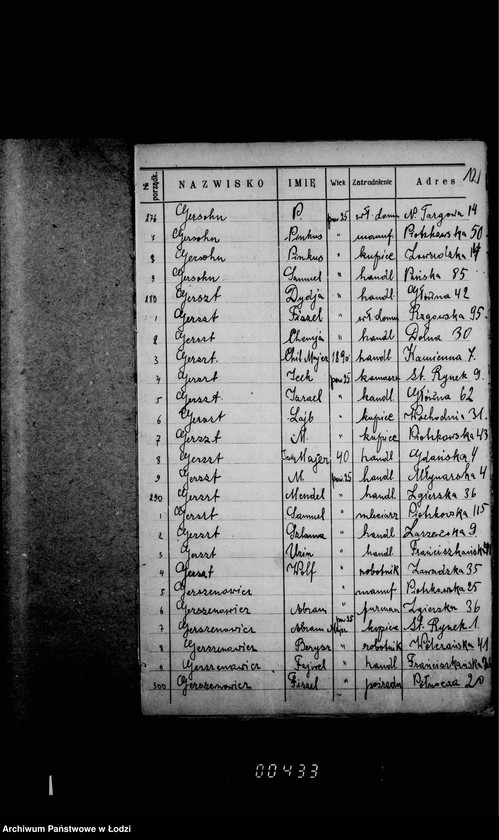 121
№ porządk. NAZWISKO IMIĘ Wiek Zatrudnienie Adres
276 Gersohn P. pow 25 wł. domu N. Targowa 14
7 Gersohn Pinkus " manuf Piotrkowska 50
8 Gersohn Pinkus " kupiec Zawadzka 14
9 Gersohn Samuel " handl Pańska 85
280 Gerszt Dydja " handl. Główna 42
1 Gerszt Fiszel " wł. domu Rzgowska 95.
2 Gerszt Chemja " handl Dolna 30
3 Gerszt. Chil Majer 1890 handl Kamienna 7.
4 Gerszt Icek pow 25 kamasz St. Rynek 9.
5 Gerszt Izrael " handl Główna 62
6 Gerszt Lajb " kupiec Wschodnia 31.
7 Gerszt M. " kupiec Piotrkowska 43
8 Gerszt Majer 40 handl Gdańska 4
9 Gerszt M. pow 25 handl Młynarska 4
290 Gerszt Mendel " handl Zgierska 36
1 Gerszt Samuel " mleciarz Piotrkowska 115
2 Gerszt Szlama " handl Zarzewska 9
3 Gerszt " handl Franciszkańska
4 Gerszt Wolf " robotnik Zawadzka 35
5 Gerszenowicz " manuf Piotrkowska 25
6 Gerszenowicz Abram " furman Zgierska 36
7 Gerszenowicz Abram Majer pow 25 kupiec St. Rynek 1.
8 Gerszenowicz Berysz " robotnik Wólczańska 41
9 Gerszenowicz Fajwel " handl Franciszkańska
300 Gerszenowicz Fiszel " pośredn Północna 20
00433
Archiwum Państwowe w Łodzi